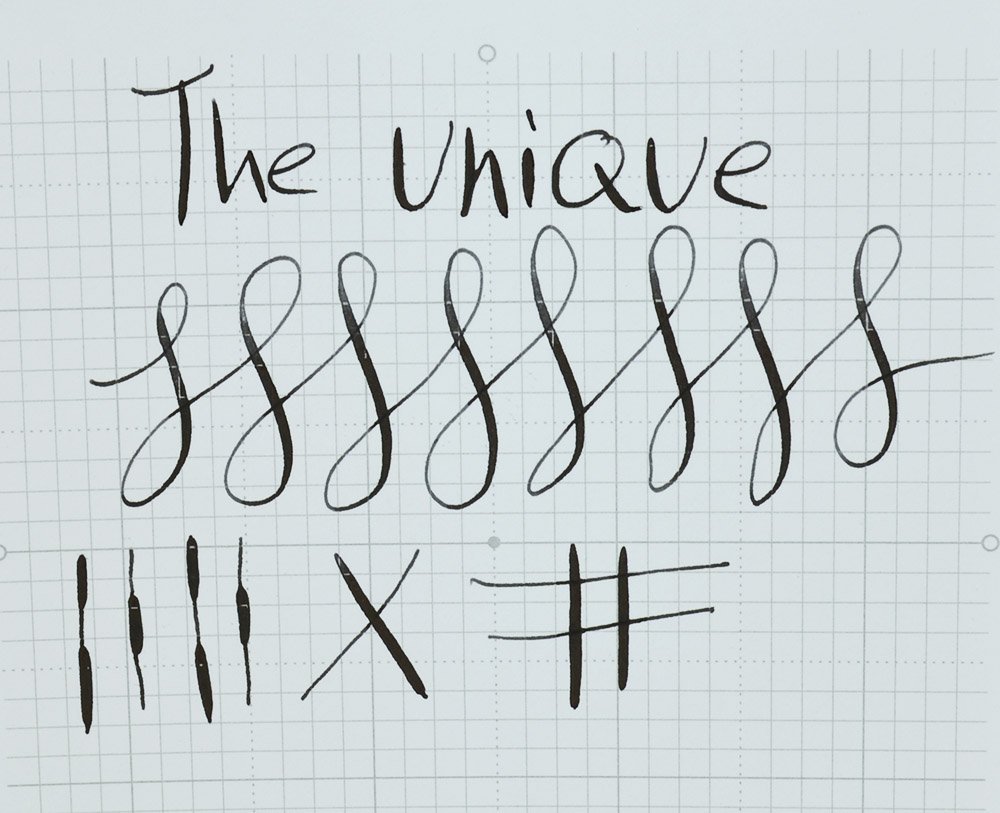 The unique